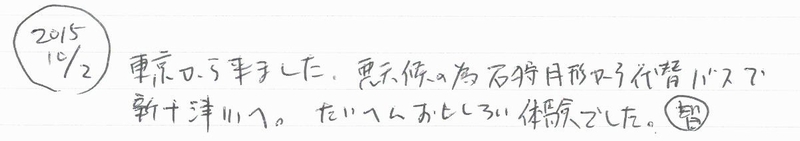 2015
10/2
東京から来ました。悪天候の為石狩月形から代替バスで
新十津川へ。たいへんおもしろい体験でした。智